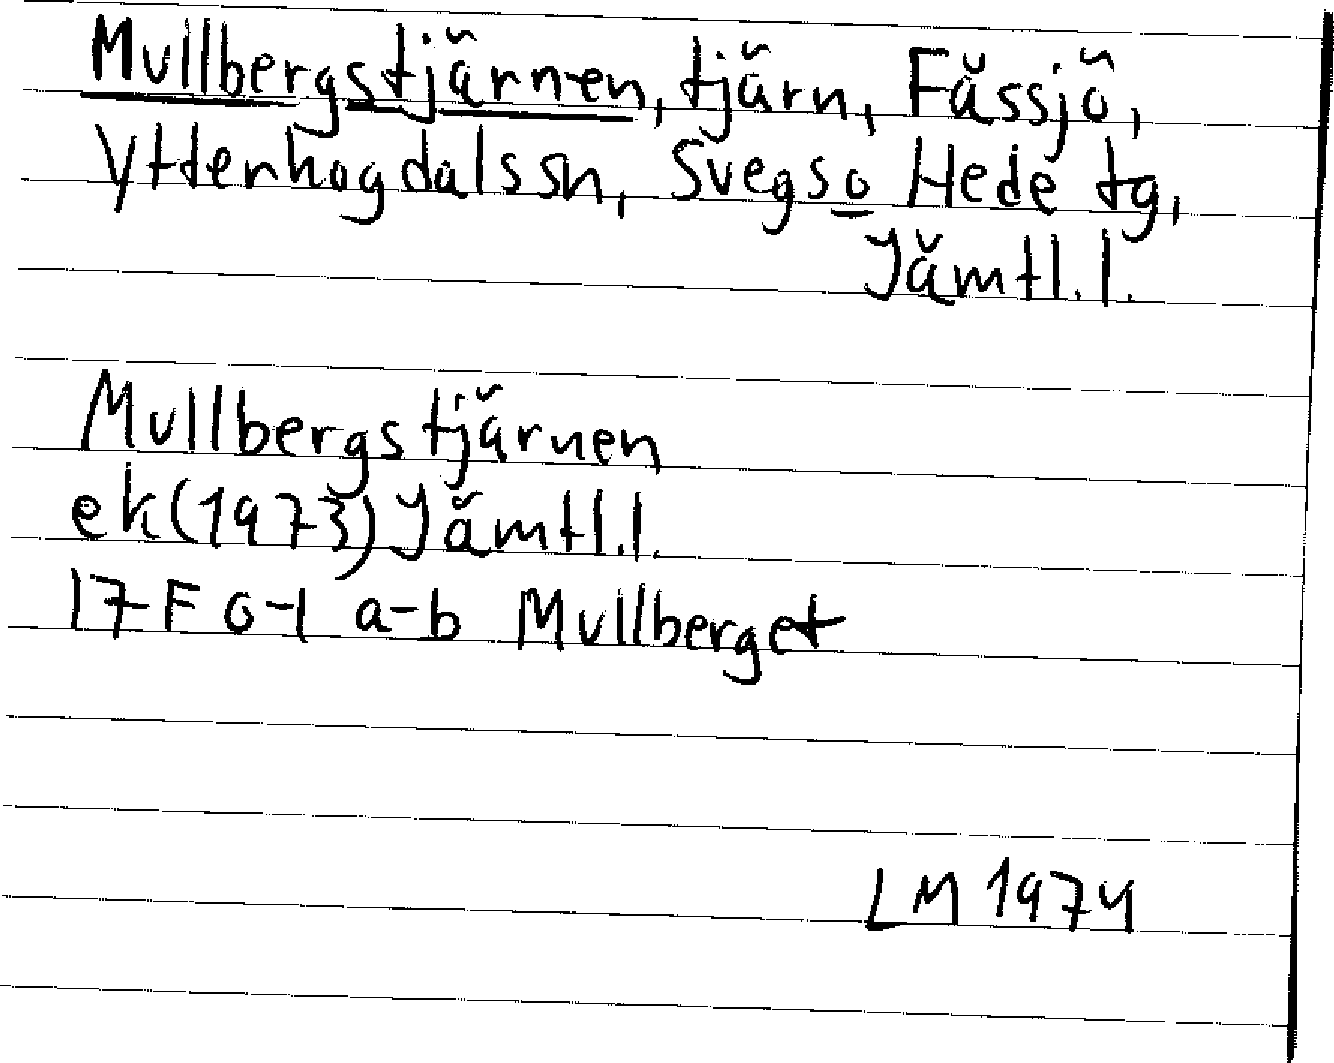 Mullbergstjärnen, tjärn, Fåssjö,
Ytterhogdals sn, Svegs o Hede tg,
Jämtl. l.
Mullbergstjärnen
ek (1973) Jämtl. l.
17F 0-1 a-b Mullberget
LM 1974